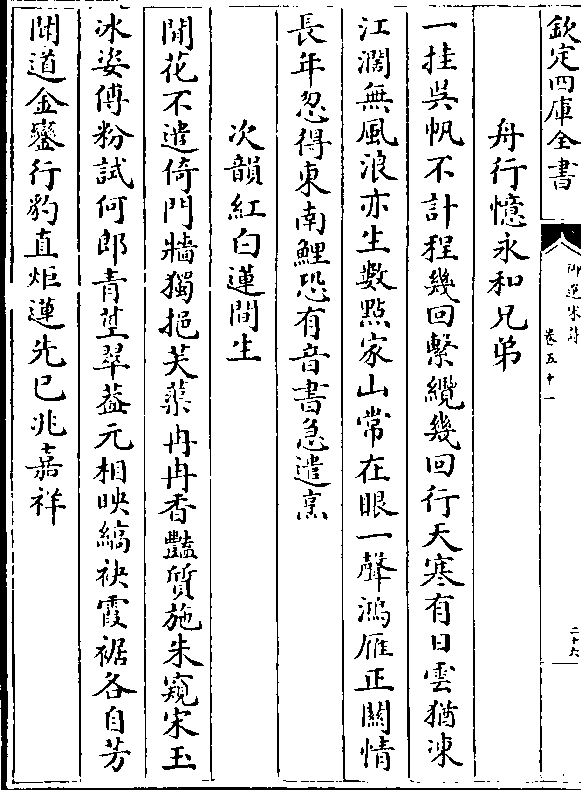 欽定四庫全書
御選宋詩
卷五十一
二十六
舟行憶永和兄弟
一挂吳帆不計程幾回繫纜幾回行天寒有日雲猶凍
江濶無風浪亦生數㸃家山常在眼一聲鴻雁正闗情
長年忽得東南鯉恐有音書急遣烹
次韻紅白蓮間生
開花不遣倚門牆獨挹芙蕖冉冉香豔質施朱窺宋玉
冰姿傅粉試何郎青莖翠葢元相映縞袂霞裾各自芳
聞道金鑾行豹直炬蓮先已兆嘉祥